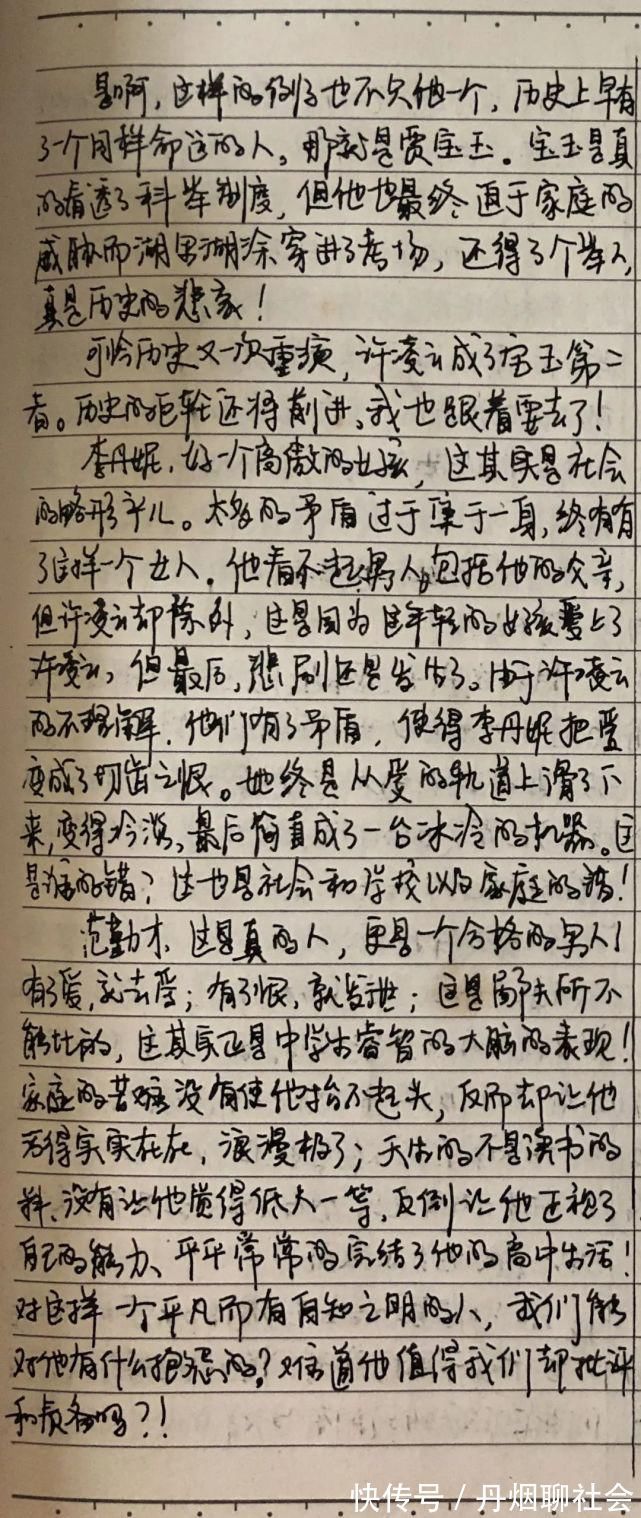 是啊，这样的例子也不欠他一个，历史上早有
了一个同样命运的人，那就是贾宝玉。宝玉是真
的看透了科举制度，但他也最终迫于家庭的
威胁而湖里湖涂穿进了考场，还得了个举人，
真是历史的悲哀！
可怜历史又一次重演，许凌云成了宝玉第二
者。历史的巨轮还将前进，我也跟着要去了！
李丹妮，好一个高傲的女孩，这其实是社会
的畸形产儿。太多的矛盾过于集于一身，终有有
了这样一个女人。他看不起男人，包括他的父亲，
但许凌云却除外，这是因为这年轻的女孩爱上了
许凌云，但最后，悲剧还是发生了。由于许凌云
的不理解，他们有了矛盾，使得李丹妮把爱
变成了切齿之恨。她终是从爱的轨道上滑了下
来，变得冷淡，最后简直成了一台冰冷的机器。这
是谁的错？这也是社会和学校以及家庭的错！
范勤才，这是真的人，更是一个合格的男人！
有了爱，就去爱；有了恨，就发泄；这是鄙夫所不
能比的，这其实正是中学生睿智的大脑的表现！
家庭的苦难没有使他抬不起头，反而却让他
活得实实在在，浪漫极了；天生的不是读书的
料，没有让他觉得低人一等，反倒让他正视了
自己的能力、平平常常的完结了他的高中生活！
对这样一个平凡而有自知之明的人，我们能
对他有什么抱怨的？难道他值得我们却批评
和责备吗？！
快传号/丹烟聊社会